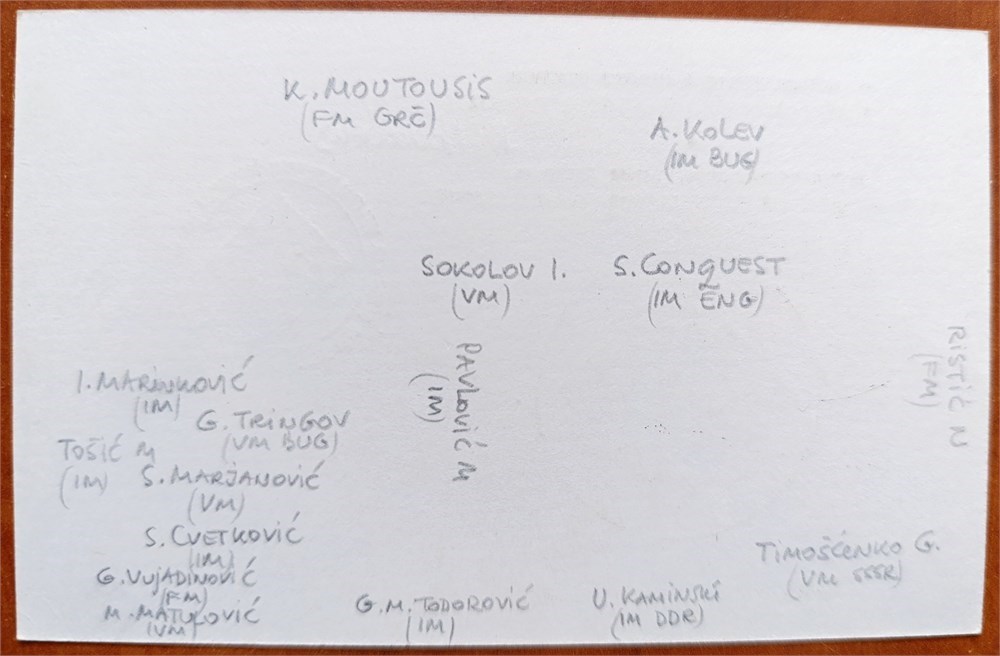 K. MOUTOUSIS
(FM GRČ)
A. KOLEV
(IM BUG)
SOKOLOV I.
(VM)
S. CONQUEST
(IM ENG)
PAVLOVIĆ M
(IM)
RISTIĆ N
(FM)
I. MARINKOVIĆ
(IM)
G. TRINGOV
(VM BUG)
TOŠIĆ M
(IM)
S. MARJANOVIĆ
(VM)
S. CVETKOVIĆ
(IM)
G. VUJADINOVIĆ
(FM)
M. MATULOVIĆ
(VM)
G. M. TODOROVIĆ
(IM)
U. KAMINSKI
(IM DDR)
TIMOŠĆENKO G.
(VM SSSR)